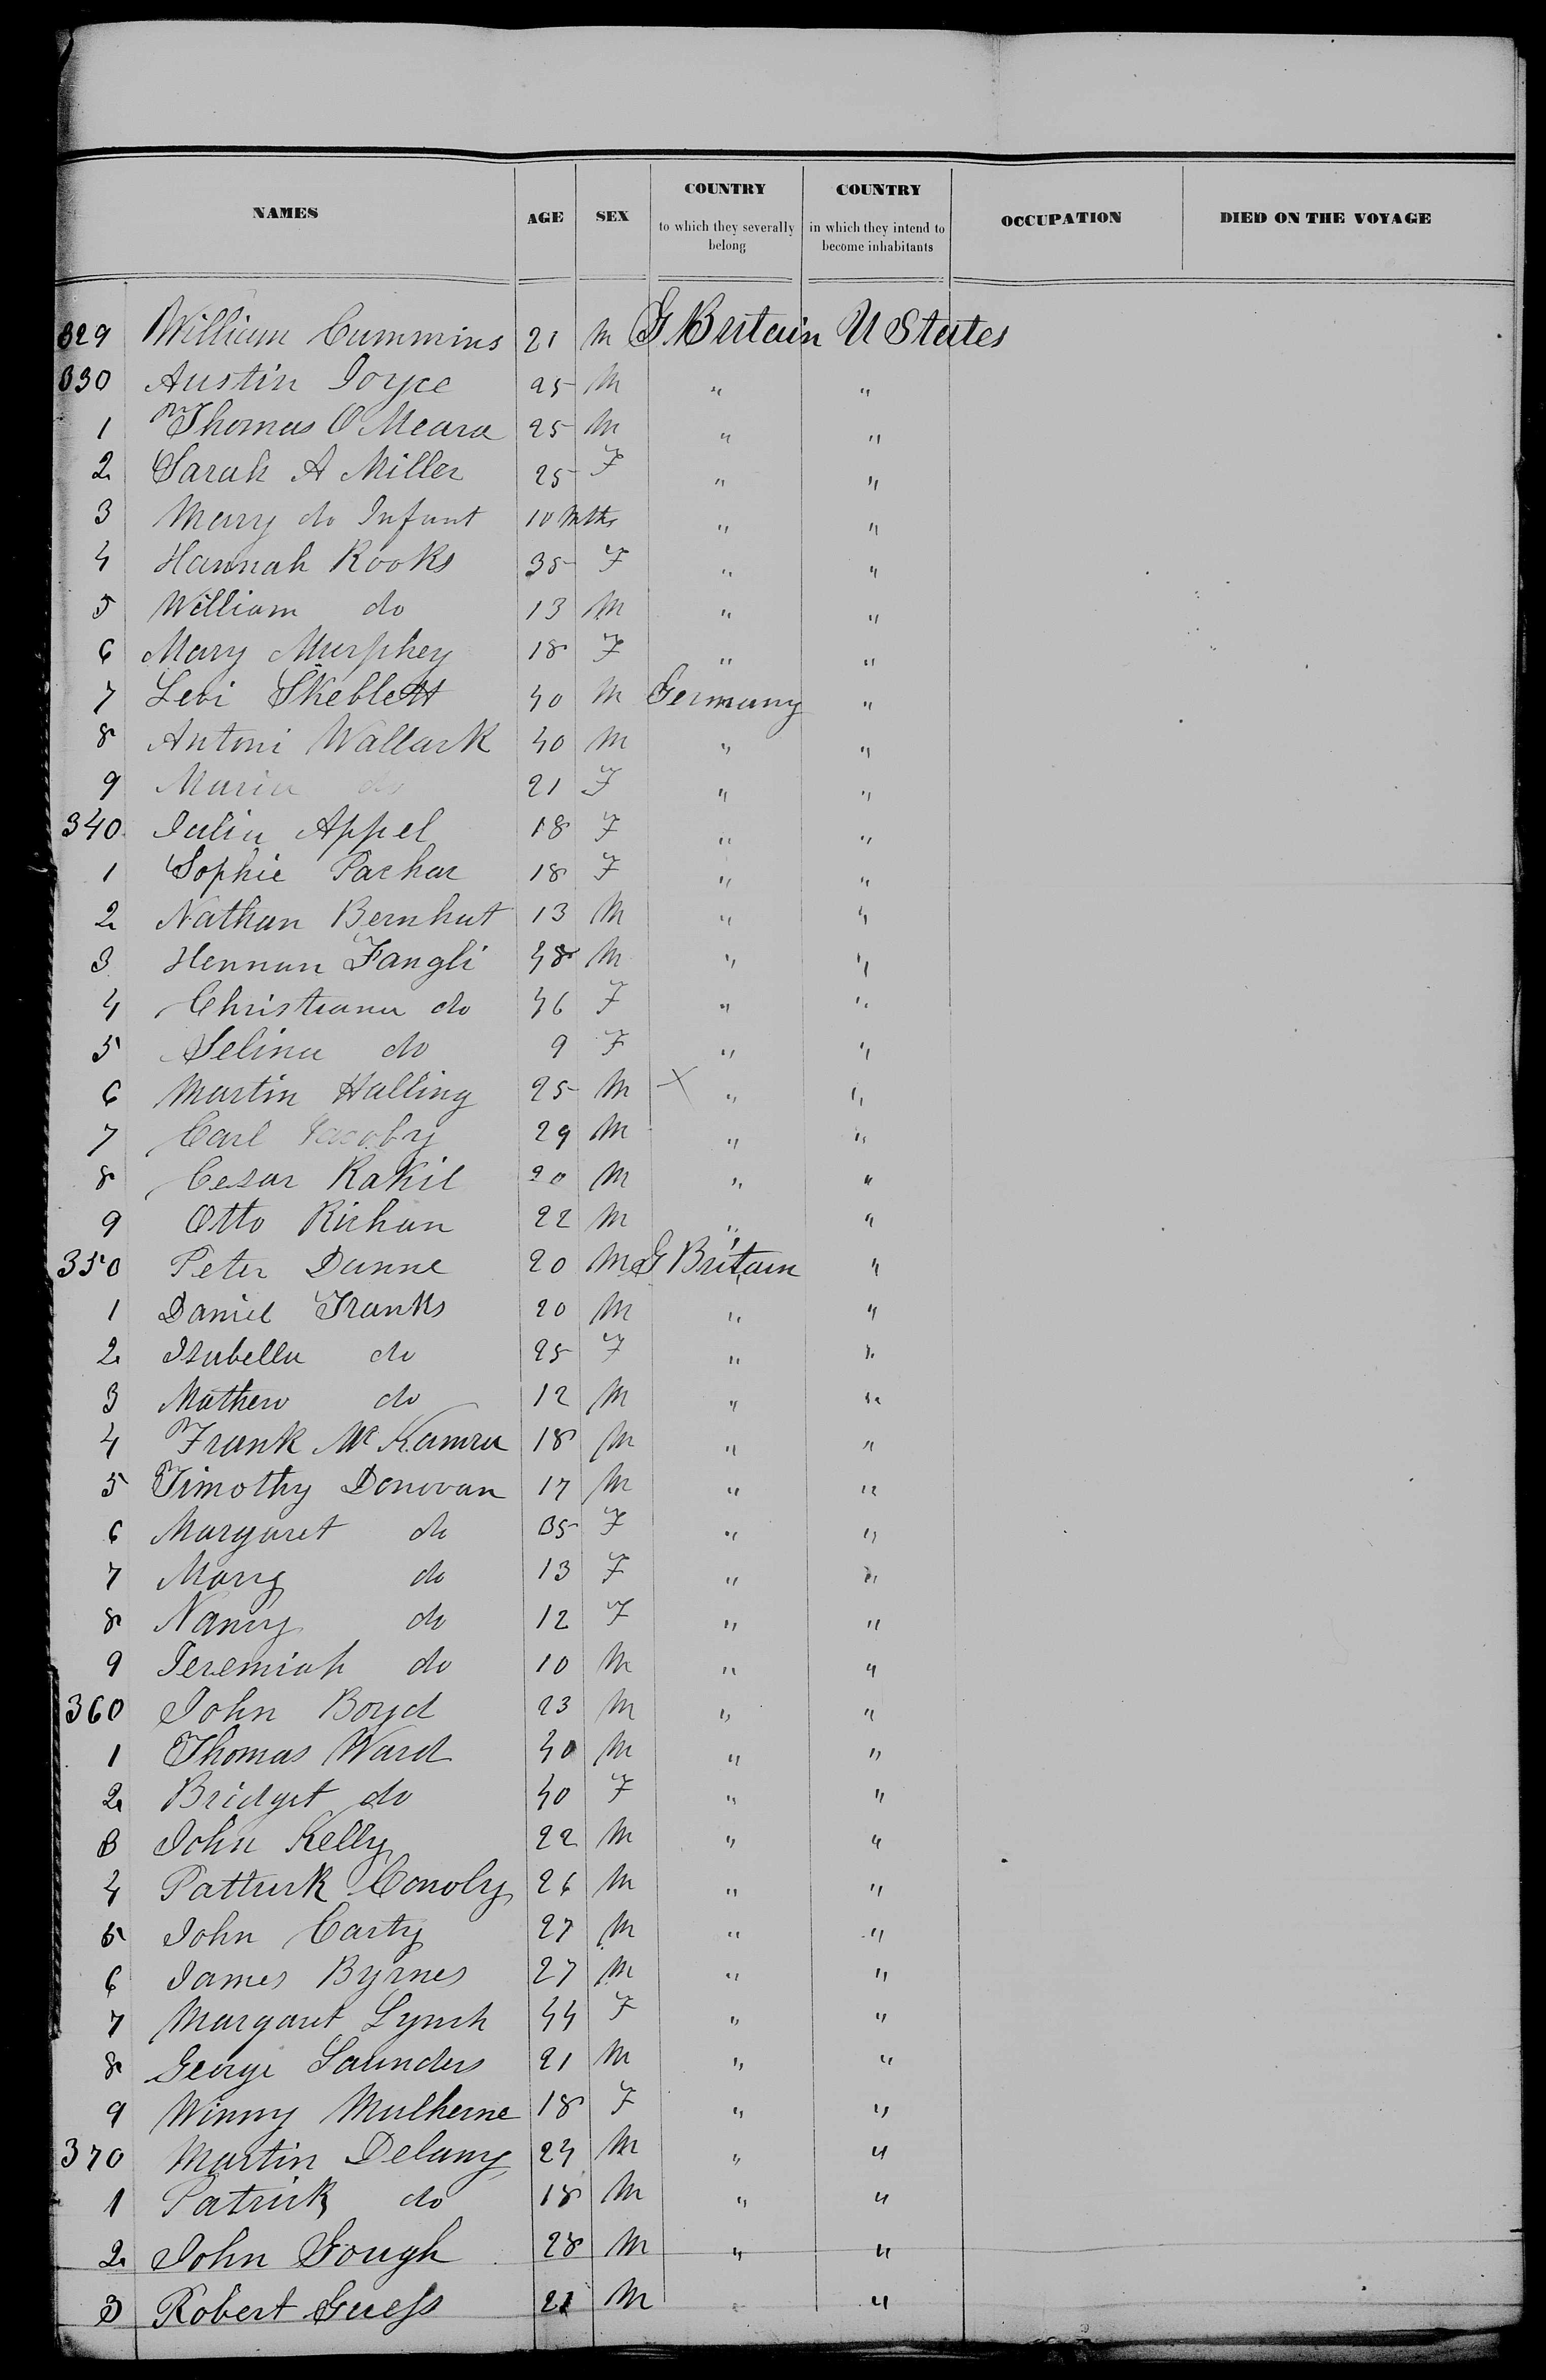 NAMES AGE SEX COUNTRY to which they severally belong COUNTRY in which they intend to become inhabitants OCCUPATION DIED ON THE VOYAGE
329 William Cummins 21 M G. Britain U States
330 Austin Joyce 25 M " "
1 Thomas O Meara 25 M " "
2 Sarah A Miller 25 F " "
3 Mary do Infant 10 Mths " "
4 Hannah Rooks 35 F " "
5 William do 13 M " "
6 Mary Murphey 18 F " "
7 Levi Skeblett 40 M Germany "
8 Antoni Wallark 40 M " "
9 Maria do 21 F " "
340 Julia Appel 18 F " "
1 Sophie Pachar 18 F " "
2 Nathan Bernhut 13 M " "
3 Hennan Fangli 48 M " "
4 Christiana do 46 F " "
5 Selina do 9 F " "
6 Martin Halling 25 M X " "
7 Carl Jacoby 29 M " "
8 Cesar Rakil 20 M " "
9 Otto Richan 22 M " "
350 Peter Dunne 20 M G Britain "
1 Daniel Franks 20 M " "
2 Isabella do 25 F " "
3 Mathew do 12 M " "
4 Frank Mc Kamra 18 M " "
5 Timothy Donovan 17 M " "
6 Margaret do 35 F " "
7 Mary do 13 F " "
8 Nancy do 12 F " "
9 Jeremiah do 10 M " "
360 John Boyd 23 M " "
1 Thomas Ward 40 M " "
2 Bridget do 40 F " "
3 John Kelly 22 M " "
4 Patturk Conoly 26 M " "
5 John Carty 27 M " "
6 James Byrnes 27 M " "
7 Margaret Lynch 44 F " "
8 George Saunders 21 M " "
9 Winny Mulherne 18 F " "
370 Martin Delany 24 M " "
1 Patrick do 18 M " "
2 John Gough 28 M " "
3 Robert Guess 21 M " "